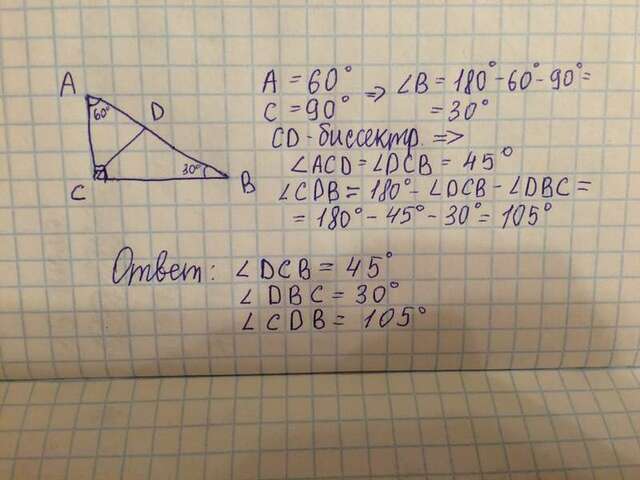 A
60°
D
C
30°
B
A = 60°
C = 90°
=> ∠B = 180° - 60° - 90° =
= 30°
CD - биссектр. =>
∠ACD = ∠DCB = 45°
∠CDB = 180° - ∠DCB - ∠DBC =
= 180° - 45° - 30° = 105°
Ответ: ∠DCB = 45°
∠DBC = 30°
∠CDB = 105°